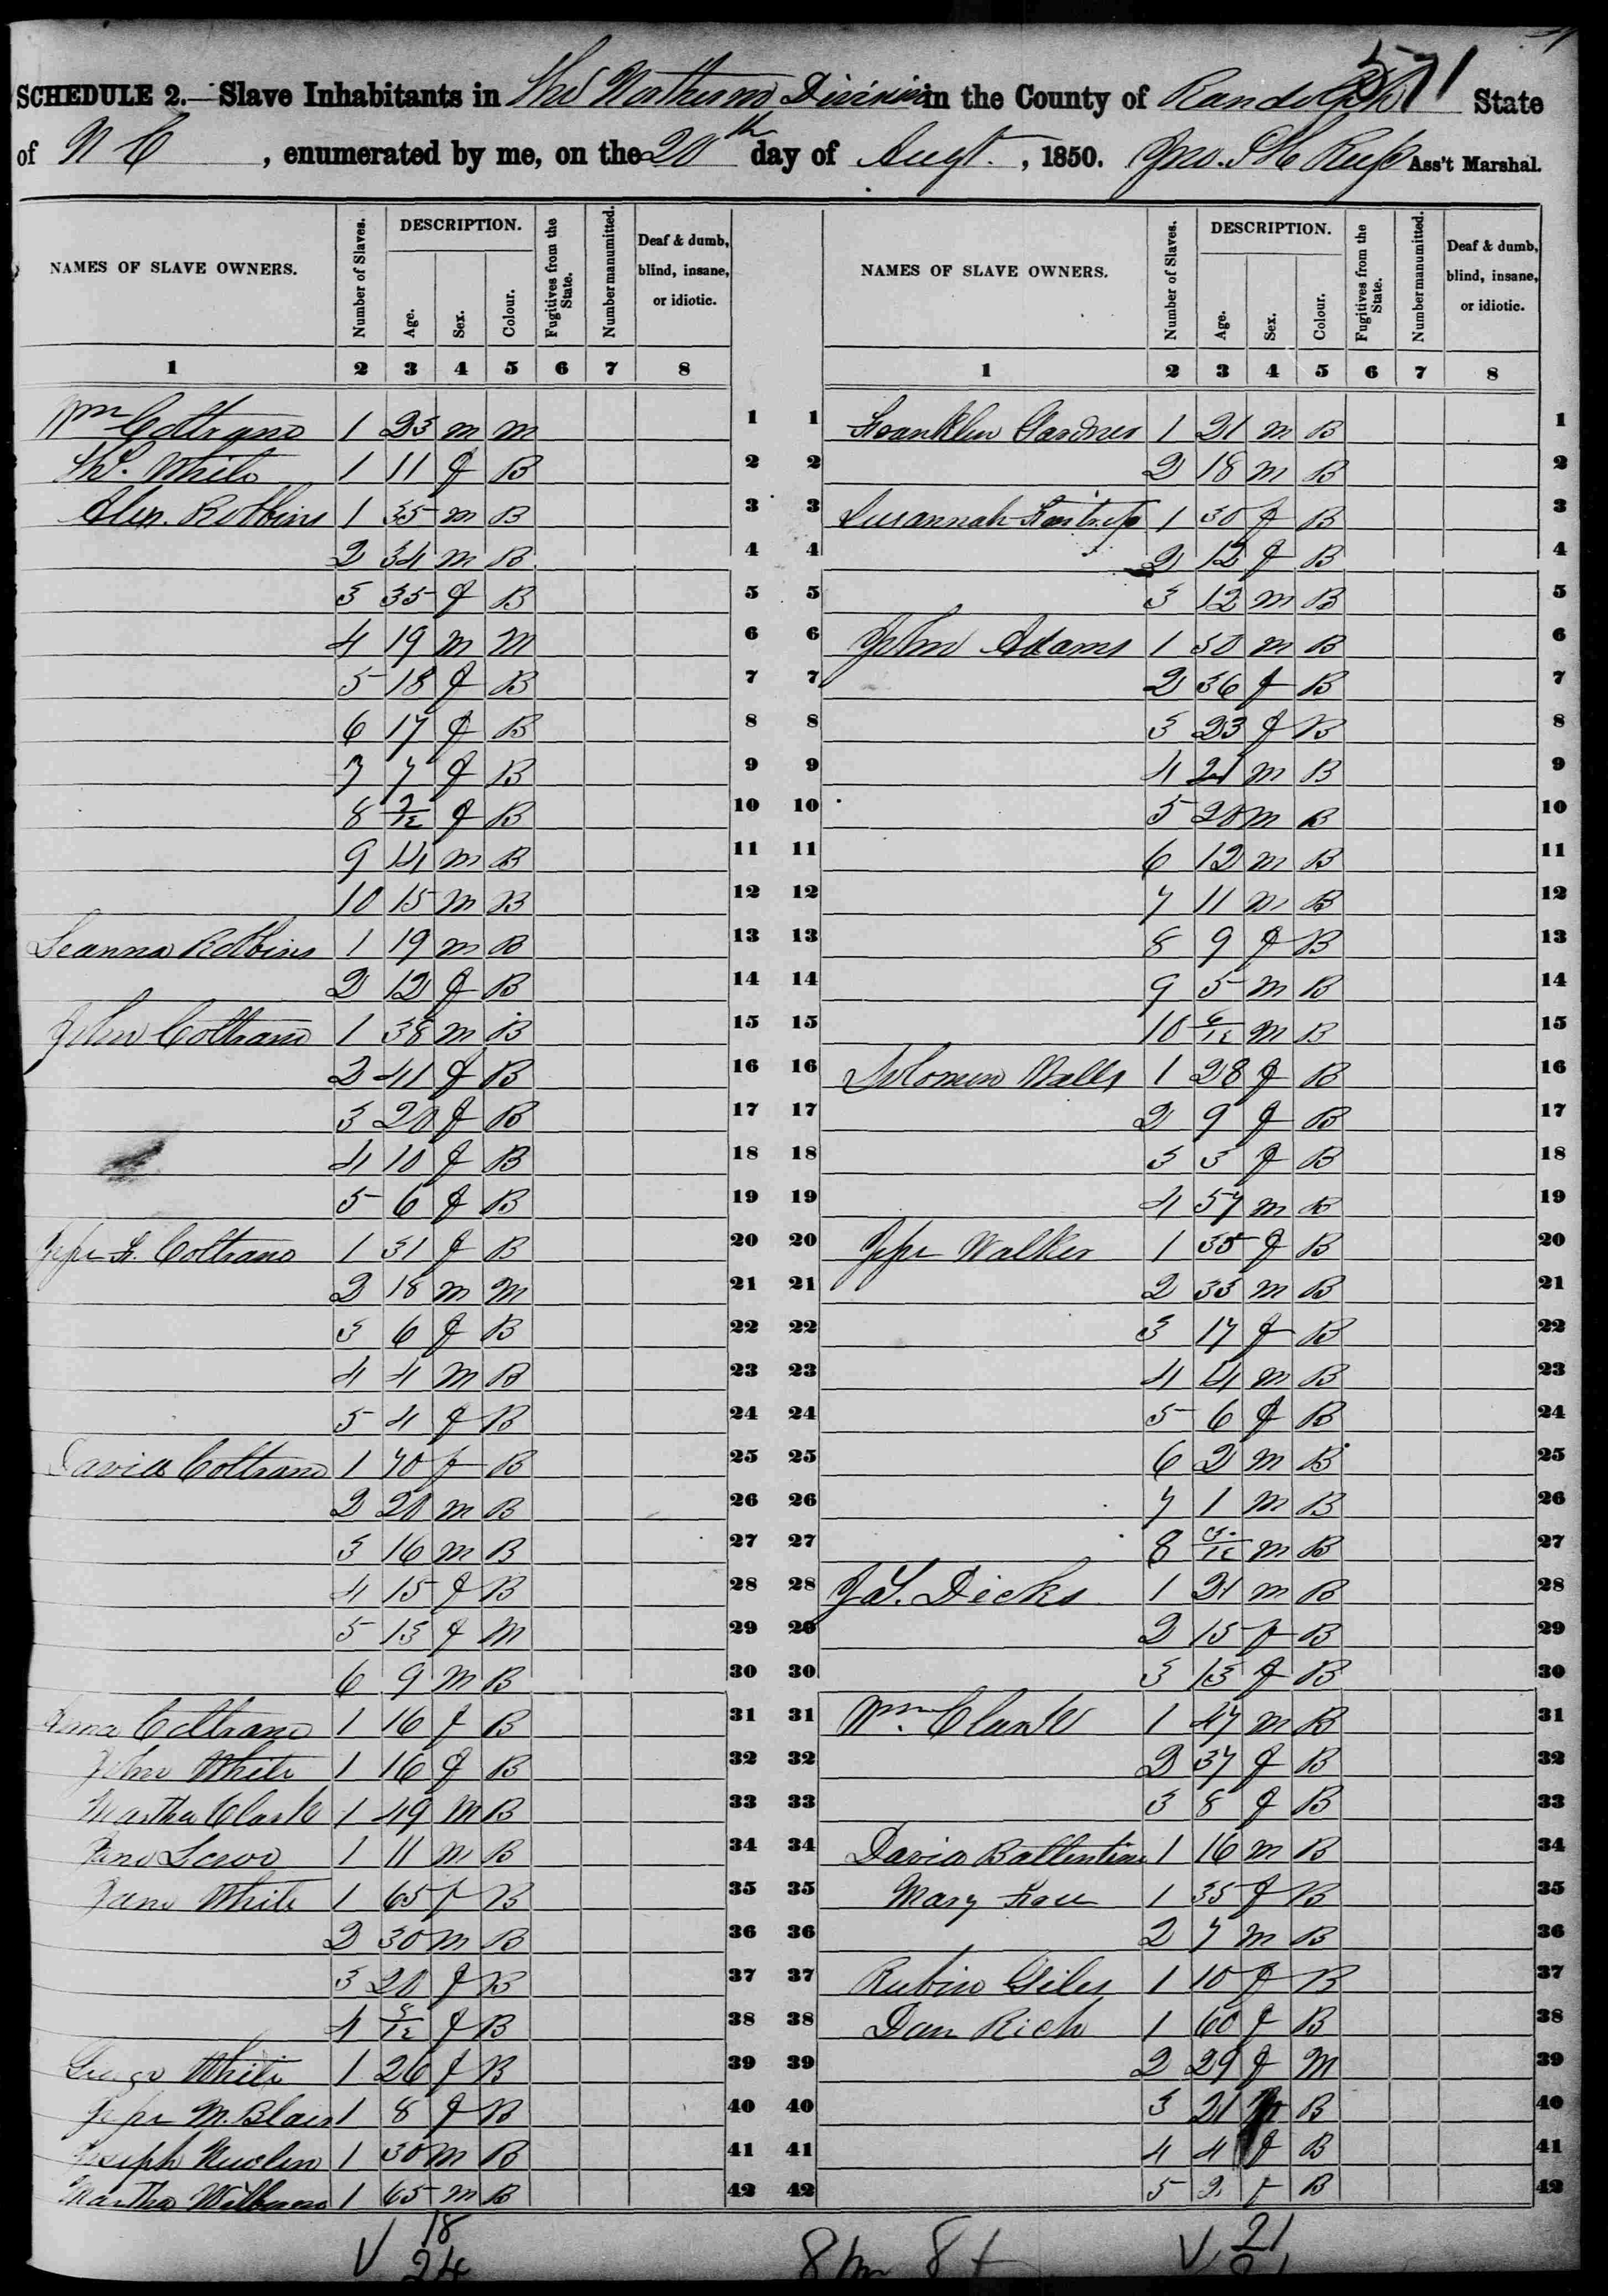 571
SCHEDULE 2.—Slave Inhabitants in The Northern Division in the County of Randolph State
of N C, enumerated by me, on the 20th day of Augt., 1850. Ass't Marshal.
NAMES OF SLAVE OWNERS. Number of Slaves. DESCRIPTION. Age. Sex. Colour. Fugitives from the State. Number manumitted. Deaf & dumb, blind, insane, or idiotic. NAMES OF SLAVE OWNERS. Number of Slaves. DESCRIPTION. Age. Sex. Colour. Fugitives from the State. Number manumitted. Deaf & dumb, blind, insane, or idiotic.
1 2 3 4 5 6 7 8 1 2 3 4 5 6 7 8
Wm Coltrane 1 23 m m 1 1 Franklin Gardner 1 21 m B 1
Tho. White 1 11 f B 2 2 2 18 m B 2
Alex. Robbins 1 35 m B 3 3 Susannah 1 30 f B 3
2 34 m B 4 4 2 12 f B 4
3 35 f B 5 5 3 12 m B 5
4 19 m M 6 6 John Adams 1 50 m B 6
5 18 f B 7 7 2 36 f B 7
6 17 f B 8 8 3 23 f B 8
7 7 f B 9 9 4 21 m B 9
8 2/12 f B 10 10 5 20 m B 10
9 14 m B 11 11 6 12 m B 11
10 15 m B 12 12 7 11 m B 12
Leanna Robbins 1 19 m B 13 13 8 9 f B 13
2 12 f B 14 14 9 5 m B 14
John Coltrane 1 38 m B 15 15 10 6/12 m B 15
2 41 f B 16 16 Solomon Walls 1 28 f B 16
3 20 f B 17 17 2 9 f B 17
4 10 f B 18 18 3 3 f B 18
5 6 f B 19 19 4 57 m B 19
Jesse F. Coltrane 1 31 f B 20 20 Jesse Walker 1 35 f B 20
2 18 m M 21 21 2 33 m B 21
3 6 f B 22 22 3 17 f B 22
4 4 m B 23 23 4 14 m B 23
5 4 f B 24 24 5 6 f B 24
David Coltrane 1 70 f B 25 25 6 2 m B 25
2 20 m B 26 26 7 1 m B 26
3 16 m B 27 27 8 3/12 m B 27
4 15 f B 28 28 J. Dicks 1 21 m B 28
5 13 f M 29 29 2 15 f B 29
6 9 m B 30 30 3 13 f B 30
Coltrane 1 16 f B 31 31 Wm. Clark 1 47 m B 31
John White 1 16 f B 32 32 2 37 f B 32
Martha Clark 1 49 m B 33 33 3 8 f B 33
1 11 m B 34 34 David Ballentine 1 16 m B 34
Jane White 1 65 f B 35 35 Mary 1 35 f B 35
2 30 m B 36 36 2 7 m B 36
3 20 f B 37 37 Rubin Giles 1 10 f B 37
4 5/12 f B 38 38 Dan Rich 1 60 f B 38
White 1 26 f B 39 39 2 29 f M 39
Jesse M. Blair 1 8 f B 40 40 3 21 B 40
Joseph 1 30 m B 41 41 4 4 f B 41
Martha 1 65 m B 42 42 5 2 f B 42
V 18 8 m 8 f V 21
24 21